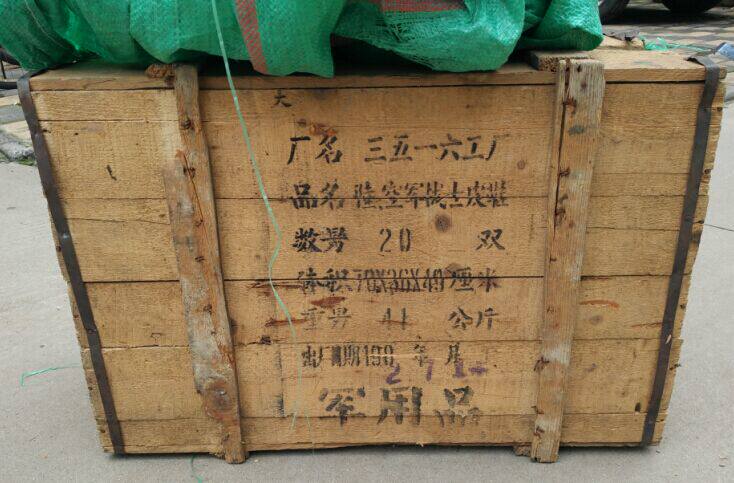 大
厂名 三五一六工厂
品名 陆、空军战士皮鞋
数量 20 双
体积 70X36X40 厘米
重量 41 公斤
出厂日期 198 年 月
军用品